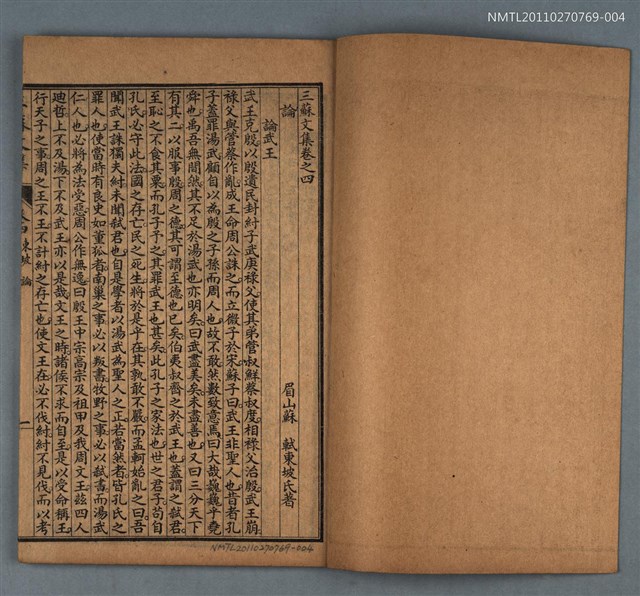 NMTL20110270769-004
三蘇文集卷之四
論 眉山蘇 軾東坡氏著
論武王
武王克殷以殷遺民封紂子武庚祿父使其弟管叔鮮蔡叔度相祿父治殷武王崩
祿父與管蔡作亂成王命周公誅之而立微子於宋蘇子曰武王非聖人也昔者孔
子蓋罪湯武顧自以為殷之子孫而周人也故不敢然數致意焉曰大哉巍巍乎堯
舜也禹吾無間然其不足於湯武也亦明矣曰武盡美矣未盡善也又曰三分天下
有其二以服事殷周之德其可謂至德也已矣伯夷叔齊之於武王也蓋謂之弒君
至恥之不食其粟而孔子予之其罪武王也甚矣此孔子之家法也世之君子苟自
孔氏必守此法國之存亡民之死生將於是乎在其孰敢不嚴而孟軻始亂之曰吾
聞武王誅獨夫紂未聞弒君也自是學者以湯武為聖人之正若當然者皆孔氏之
罪人也使當時有良史如董狐者南巢之事必以叛書牧野之事必以弒書而湯武
仁人也必將為法受惡周公作無逸曰殷王中宗高宗及祖甲及我周文王茲四人
迪哲上不及湯下不及武王亦以是哉文王之時諸侯不求而自至是以受命稱王
行天子之事周之王不王不計紂之存亡也使文王在必不伐紂紂不見伐而以考
東坡 論 一
NMTL20110270769-004